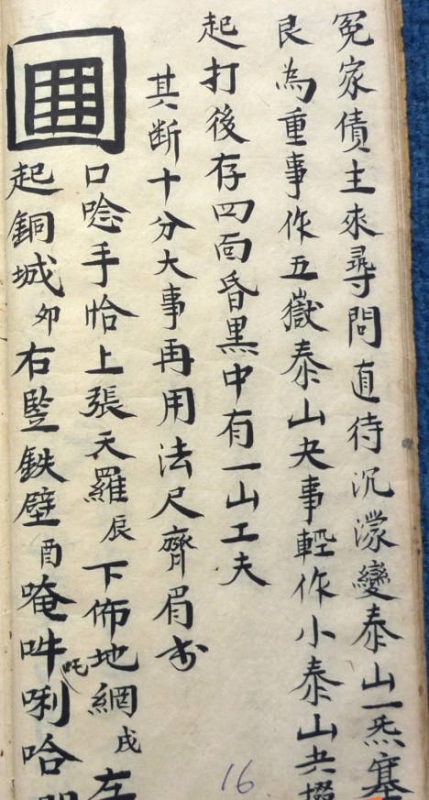 冤家債主來尋問直待沉濛變泰山一炁塞
艮為重事作五嶽泰山夬事輕作小泰山共
起打後存四面昏黑中有一山工夫
其断十分大事再用法尺齊眉
口唸手恰上張天羅辰下佈地網戌左
起銅城卯右竪鉄壁酉唵吽吒唎哈
16